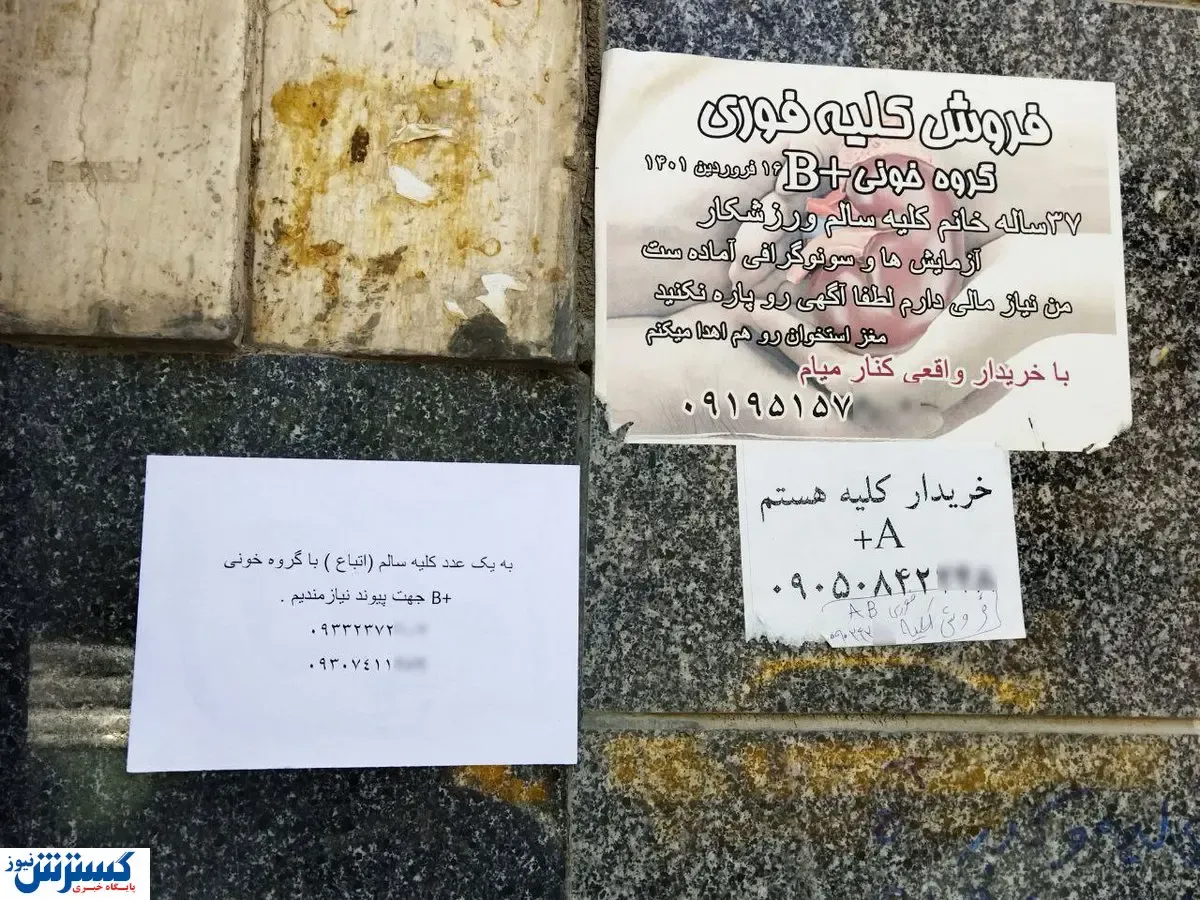 فروش کلیه فوری
گروه خونی +B ۱۶ فروردین ۱۴۰۱
۳۷ساله خانم کلیه سالم ورزشکار
آزمایش ها و سونوگرافی آماده ست
من نیاز مالی دارم لطفا آگهی رو پاره نکنید
مغز استخوان رو هم اهدا میکنم
با خریدار واقعی کنار میام
۰۹۱۹۵۱۵۷
خریدار کلیه هستم
+A
۰۹۰۵۰۸۴۲
فروش کلیه فوری AB
به یک عدد کلیه سالم (اتباع ) با گروه خونی
+B جهت پیوند نیازمندیم .
۰۹۳۳۲۳۷۲
۰۹۳۰۷٤۱۱
گسترش نیوز
پایگاه خبری